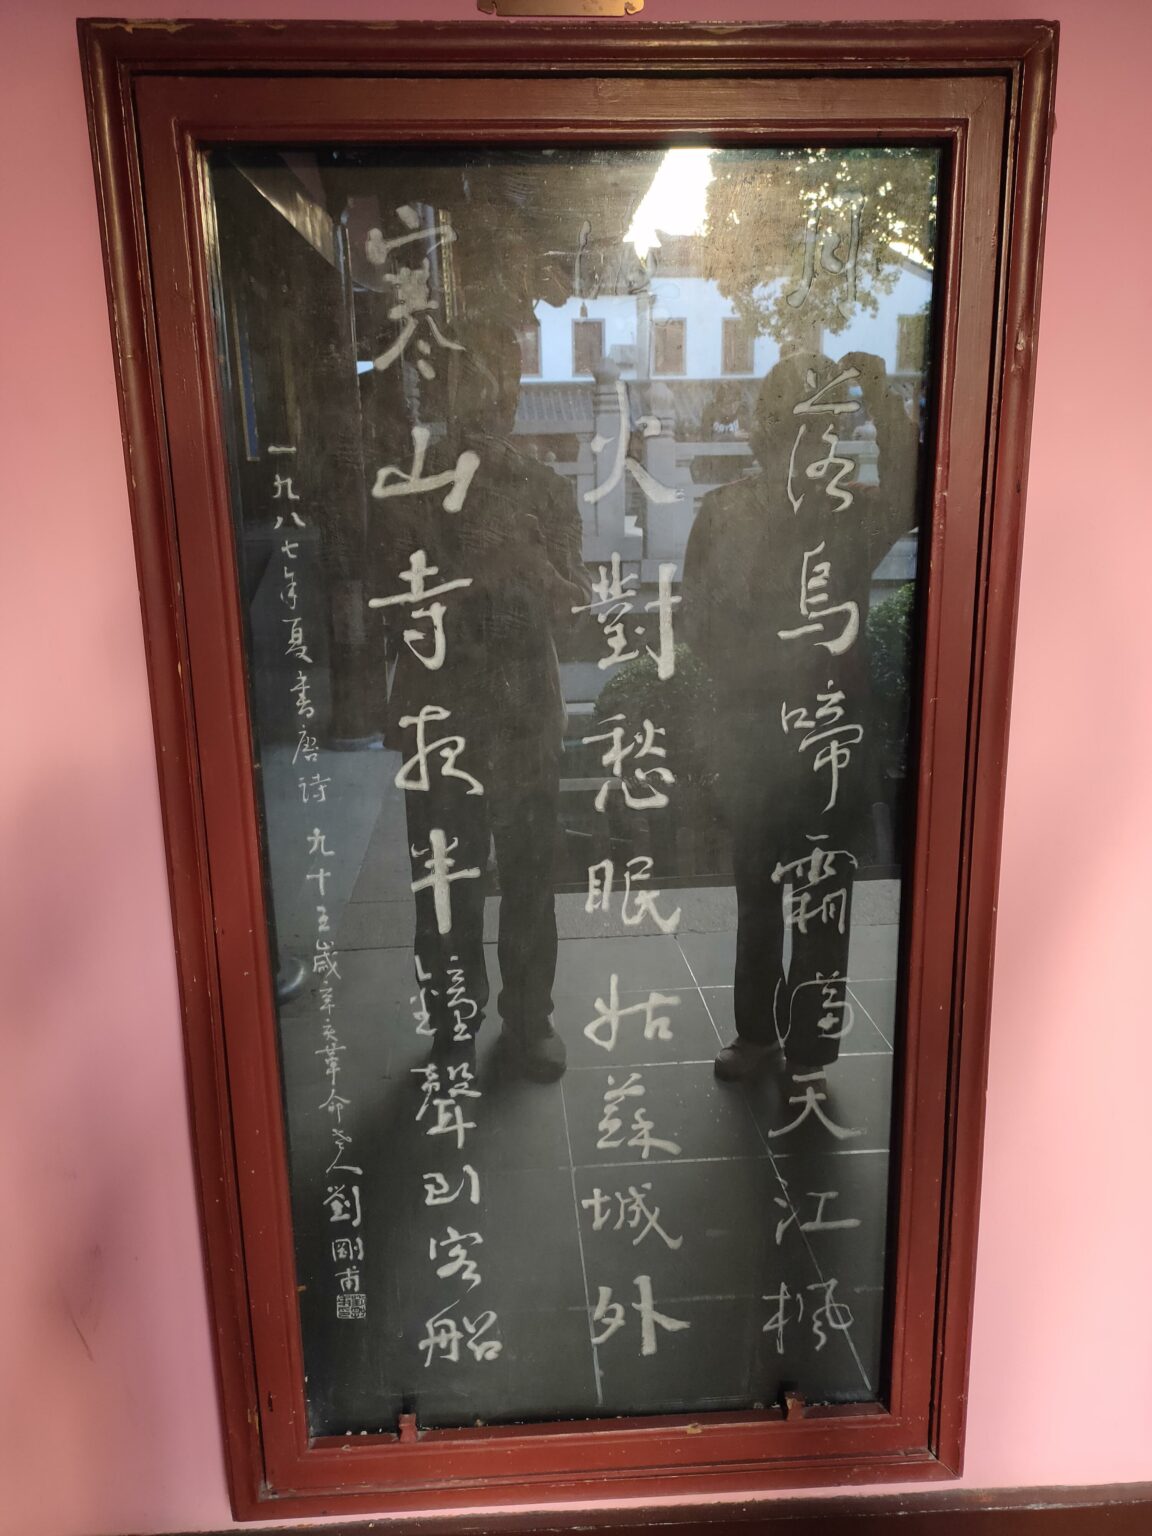 月落烏啼霜滿天江楓
漁火對愁眠姑蘇城外
寒山寺夜半鐘聲到客船
一九八七年夏書唐詩 九十五歲辛亥革命老人劉剛甫